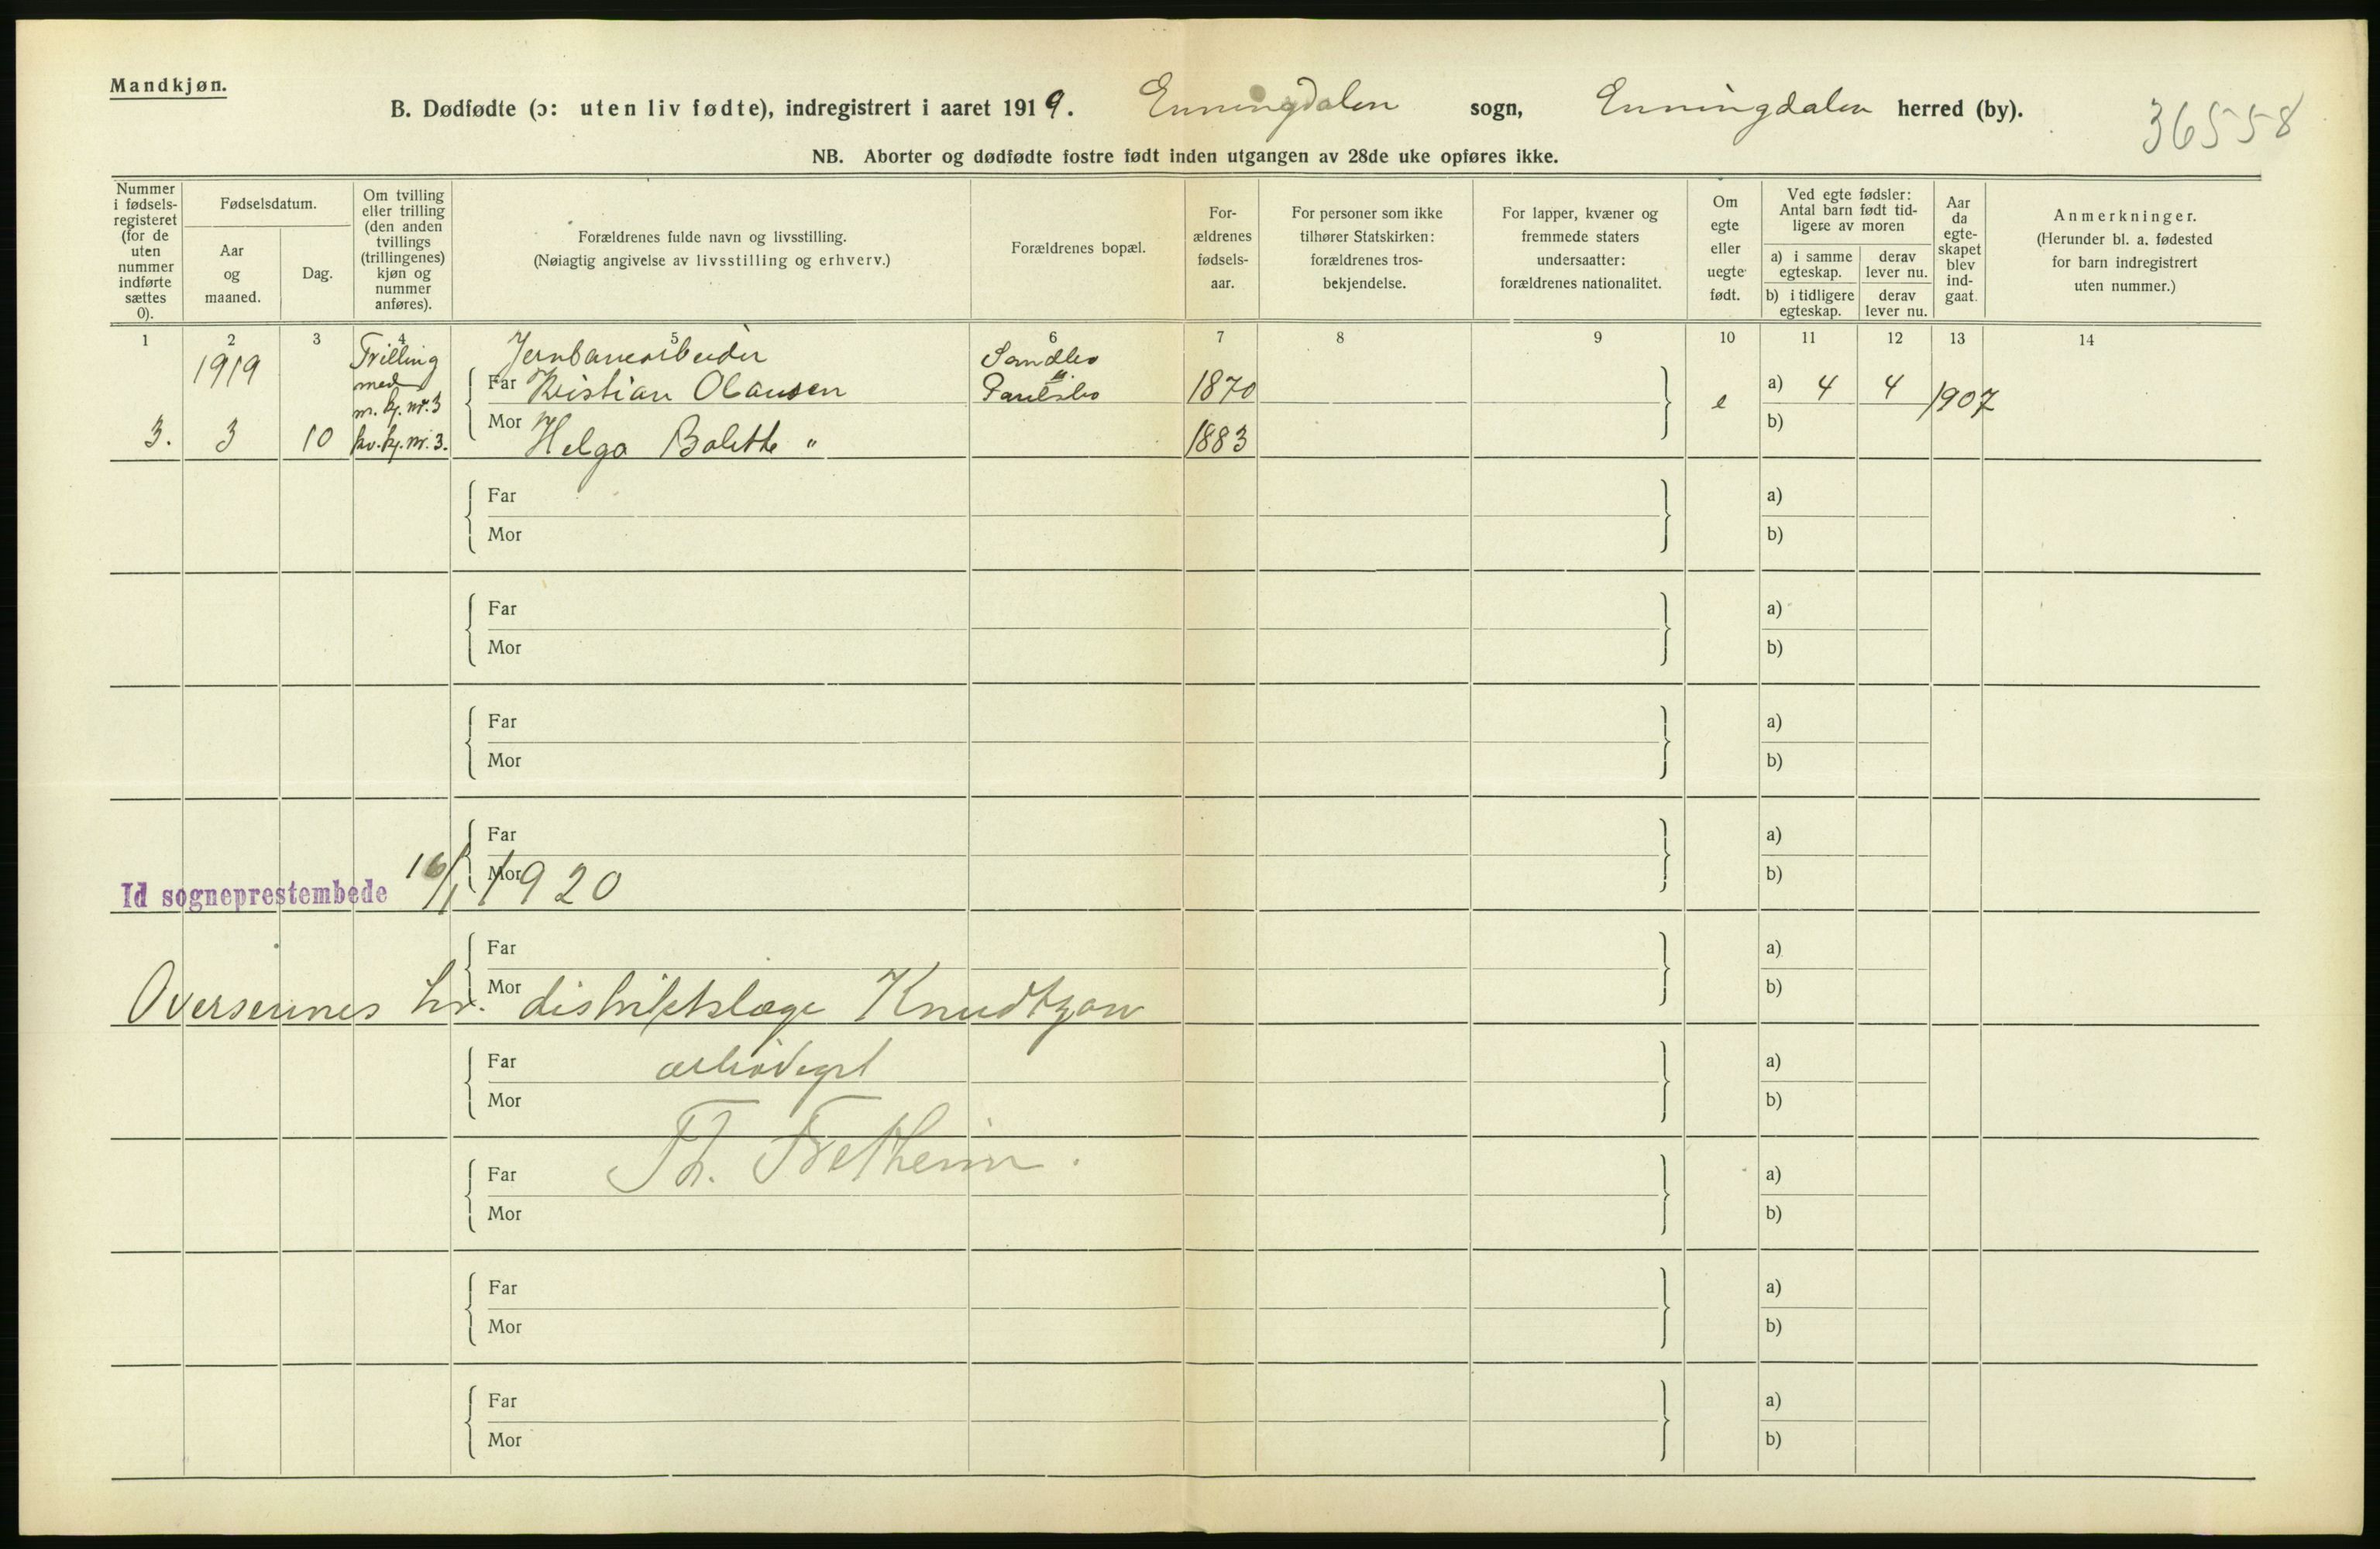 Mandkjøn.
B. Dødfødte (ɔ: uten liv fødte), indregistrert i aaret 1919. Enningdalen sogn, Enningdalen herred (by).
36558
NB. Aborter og dødfødte fostre født inden utgangen av 28de uke opføres ikke.
Nummer i fødsels-registeret (for de uten nummer indførte sættes 0).
Fødselsdatum.
Aar og maaned.
Dag.
Om tvilling eller trilling (den anden tvillings (trillingenes) kjøn og nummer anføres).
Forældrenes fulde navn og livsstilling.
(Nøiagtig angivelse av livsstilling og erhverv.)
Forældrenes bopæl.
For-ældrenes fødsels-aar.
For personer som ikke tilhører Statskirken: forældrenes tros-bekjendelse.
For lapper, kvæner og fremmede staters undersaatter: forældrenes nationalitet.
Om egte eller uegte født.
Ved egte fødsler: Antal barn født tid-ligere av moren
a) i samme egteskap.
derav lever nu.
b) i tidligere egteskap.
derav lever nu.
Aar da egte-skapet blev ind-gaat.
Anmerkninger.
(Herunder bl. a. fødested for barn indregistrert uten nummer.)
1 2 3 4 5 6 7 8 9 10 11 12 13 14
1919 Trilling Jernbanearbeider Sandbo
med Far Kristian Olausen Paulsbo 1870 e a) 4 4 1907
m. kj. nr. 3
3. 3 10 kv. kj. nr. 3. Mor Helga Bolette " 1883 b)
Far a)
Mor b)
Far a)
Mor b)
Far a)
Mor b)
Far a)
Mor b)
Id sogneprestembede 16/1 1920
Far a)
Mor b)
Oversennes hr. distriktslæge Knudtzon
Far ærbødigst a)
Mor b)
Th. Fretheim.
Far a)
Mor b)
Far a)
Mor b)
Far a)
Mor b)